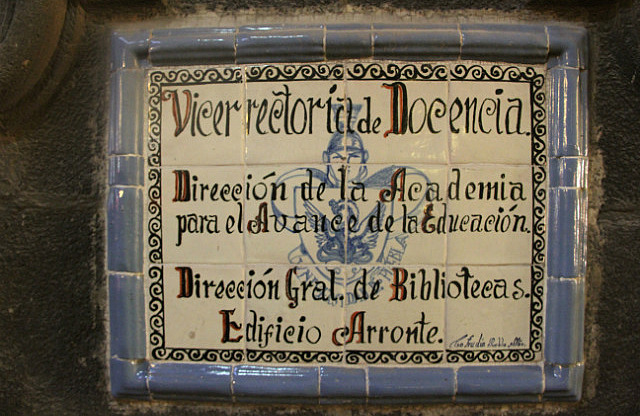 Vicerrectoria de Docencia.
Dirección de la Academia
para el Avance de la Educación.
Dirección Gral. de Bibliotecas.
Edificio Arronte.